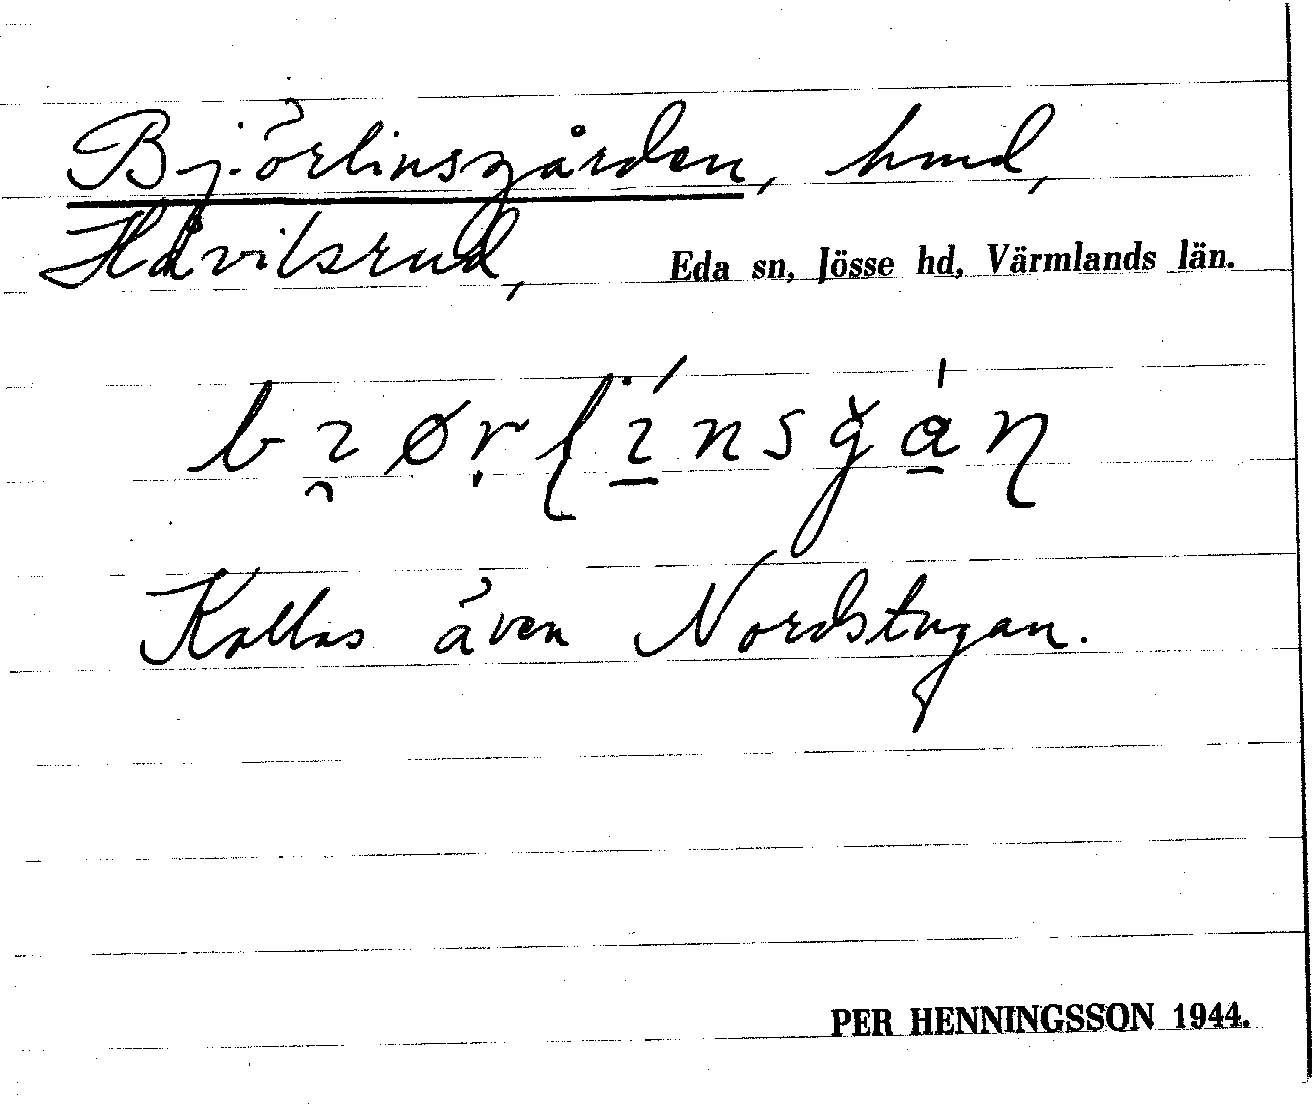 Björlinsgården, hmd,
Håvilsrud, Eda sn, Jösse hd, Värmlands län.
Kallas även Nordstugan.
PER HENNINGSSON 1944.